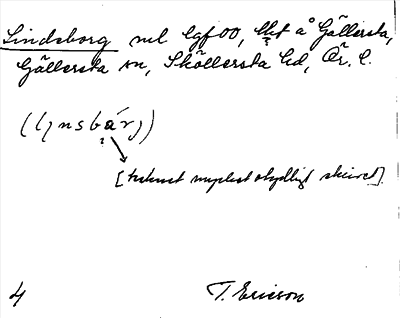 Lindsborg nul lgf 00, lht å Gällersta,
Gällersta sn, Sköllersta hd, Ör. l.
((l)nsbár))
[tecknet mycket otydligt skrivet].
4 T. Ericson